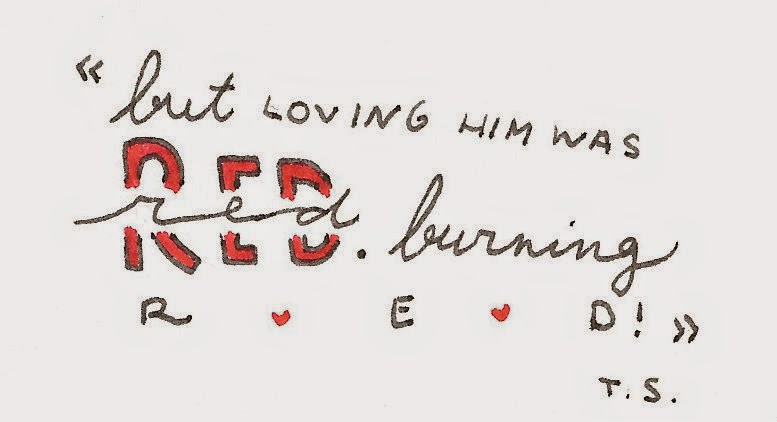 « but LOVING HIM WAS
RED red. burning
R ♥ E ♥ D! »
T.S.